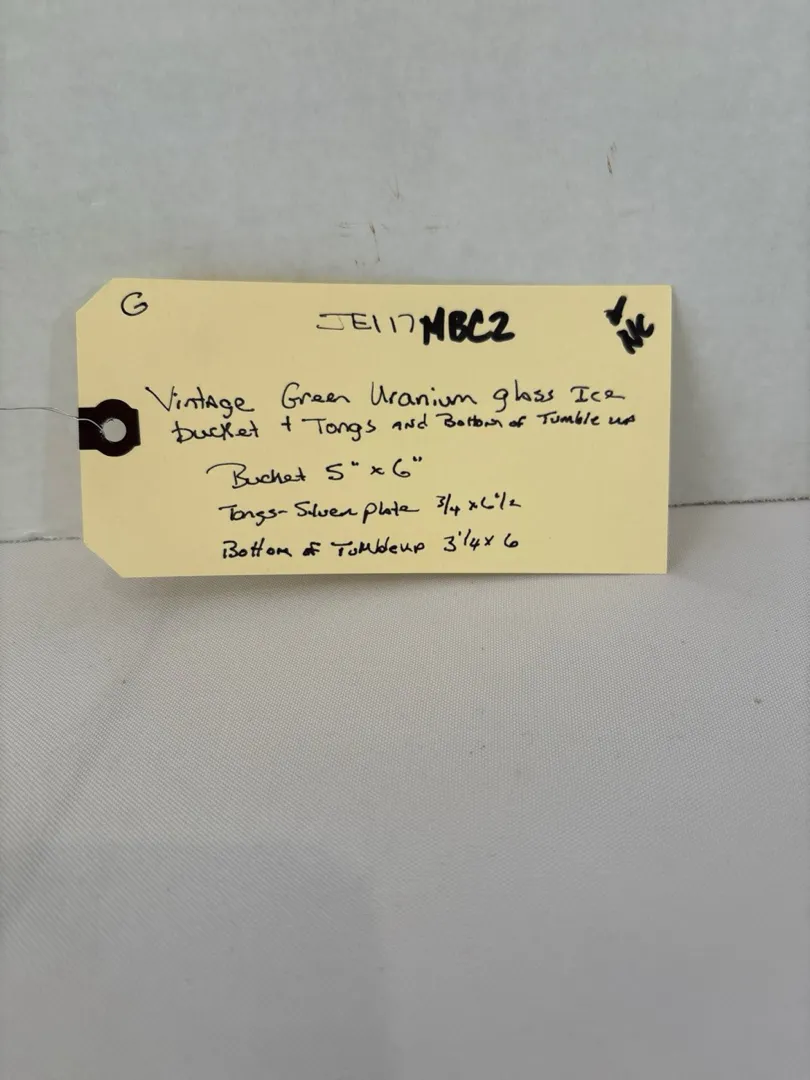 G
JE117 MBC2
✓ NC
Vintage Green Uranium glass Ice
bucket + Tongs And Bottom of Tumble up
Bucket 5" x 6"
Tongs - Silver plate 3/4 x 6 1/2
Bottom of Tumbleup 3 1/4 x 6